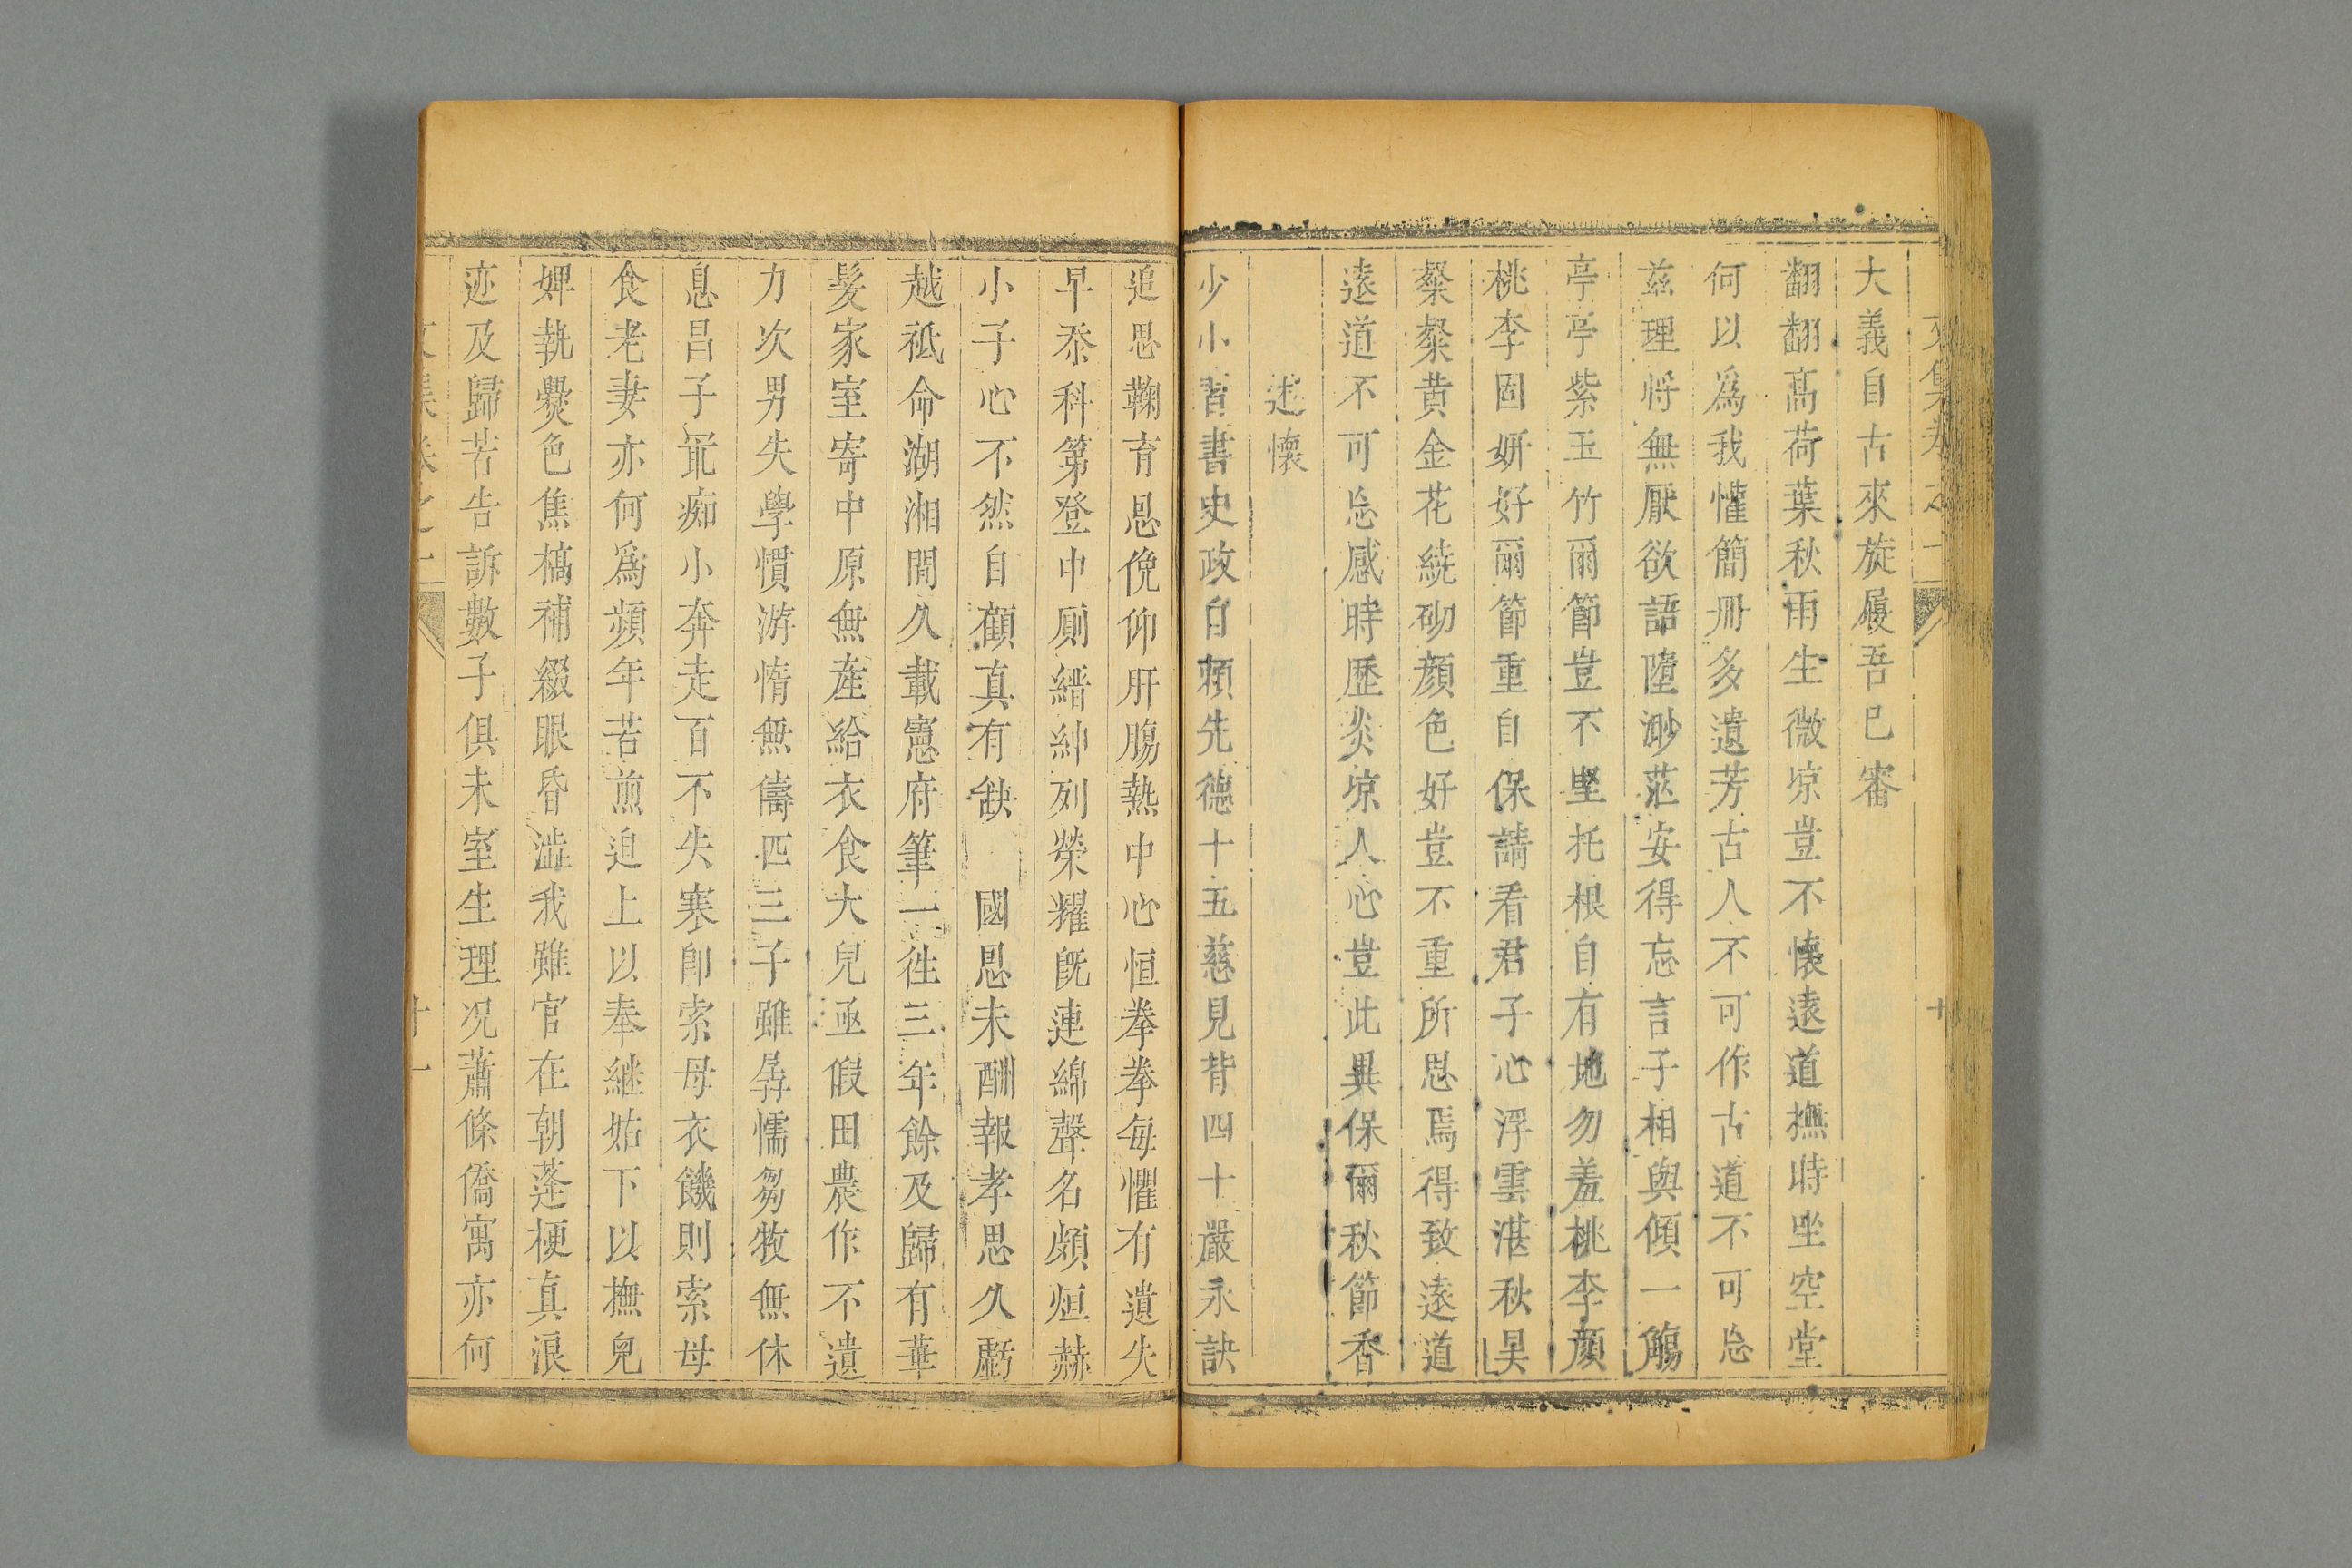 大義自古來旋履吾已審
翻翻高荷葉秋雨生微凉豈不懷遠道撫時坐空堂
何以爲我懽簡冊多遺芳古人不可作古道不可忘
茲理将無厭欲語墮渺茫安得忘言子相與傾一觴
亭亭紫玉竹爾節豈不堅托根自有地勿羞桃李顏
桃李固妍好爾節重自保請看君子心浮雲湛秋昊
粲粲黄金花繞砌顔色好豈不重所思焉得致遠道
遠道不可忘感時歷炎凉人心豈此異保爾秋節香
述懷
少小習書史政自頼先德十五慈見背四十嚴永訣
追思鞠育恩俛仰肝膓熱中心恒拳拳每懼有遺失
早忝科第登中厠縉紳列榮耀旣連綿聲名頗烜赫
小子心不然自顧真有缺 國恩未酬報孝思久虧
越祗命湖湘間久載憲府筆一徃三年餘及歸有華
髮家室寄中原無產給衣食大兒亟假田農作不遺
力次男失學慣游惰無儔匹三子雖孱懦芻牧無休
息昌子最痴小奔走百不失寒卽索母衣饑則索母
食老妻亦何爲頻年苦煎迫上以奉継姑下以撫兒
婢執爨色焦槁補綴眼昏澁我雖官在朝蓬梗真浪
迹及歸苦告訴數子俱未室生理况蕭條僑寓亦何